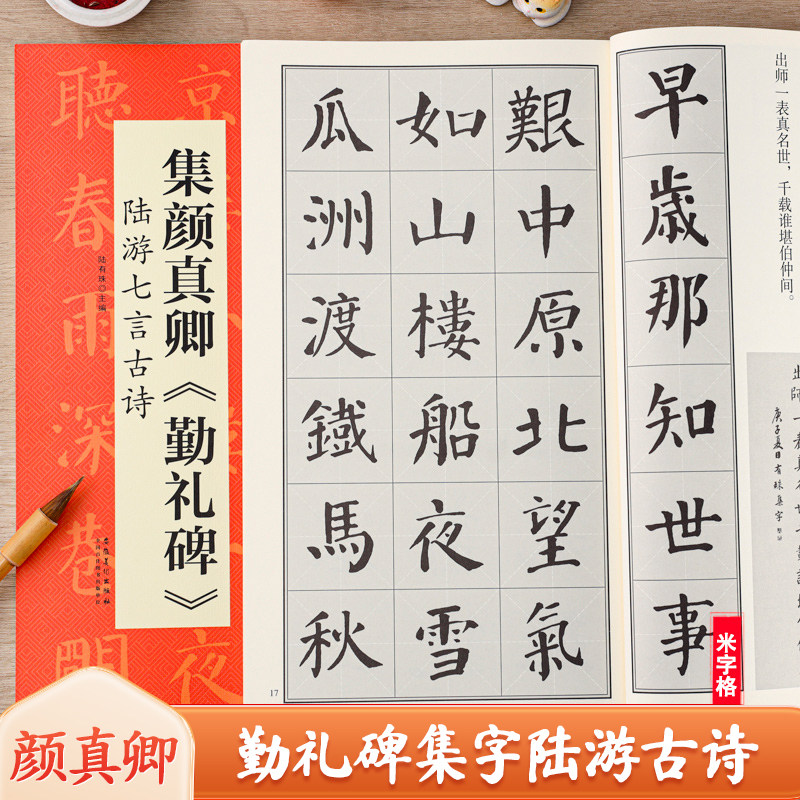 京
夜
聽春雨深巷
集颜真卿《勤礼碑》
陆游七言古诗
陆有珠◎主编
安徽美术出版社
出师一表真名世,千载谁堪伯仲间。
庚子夏日有珠集字
早歲那知世事
艱中原北望氣
如山樓船夜雪
瓜洲渡鐵馬秋
17
米字格
颜真卿
勤礼碑集字陆游古诗